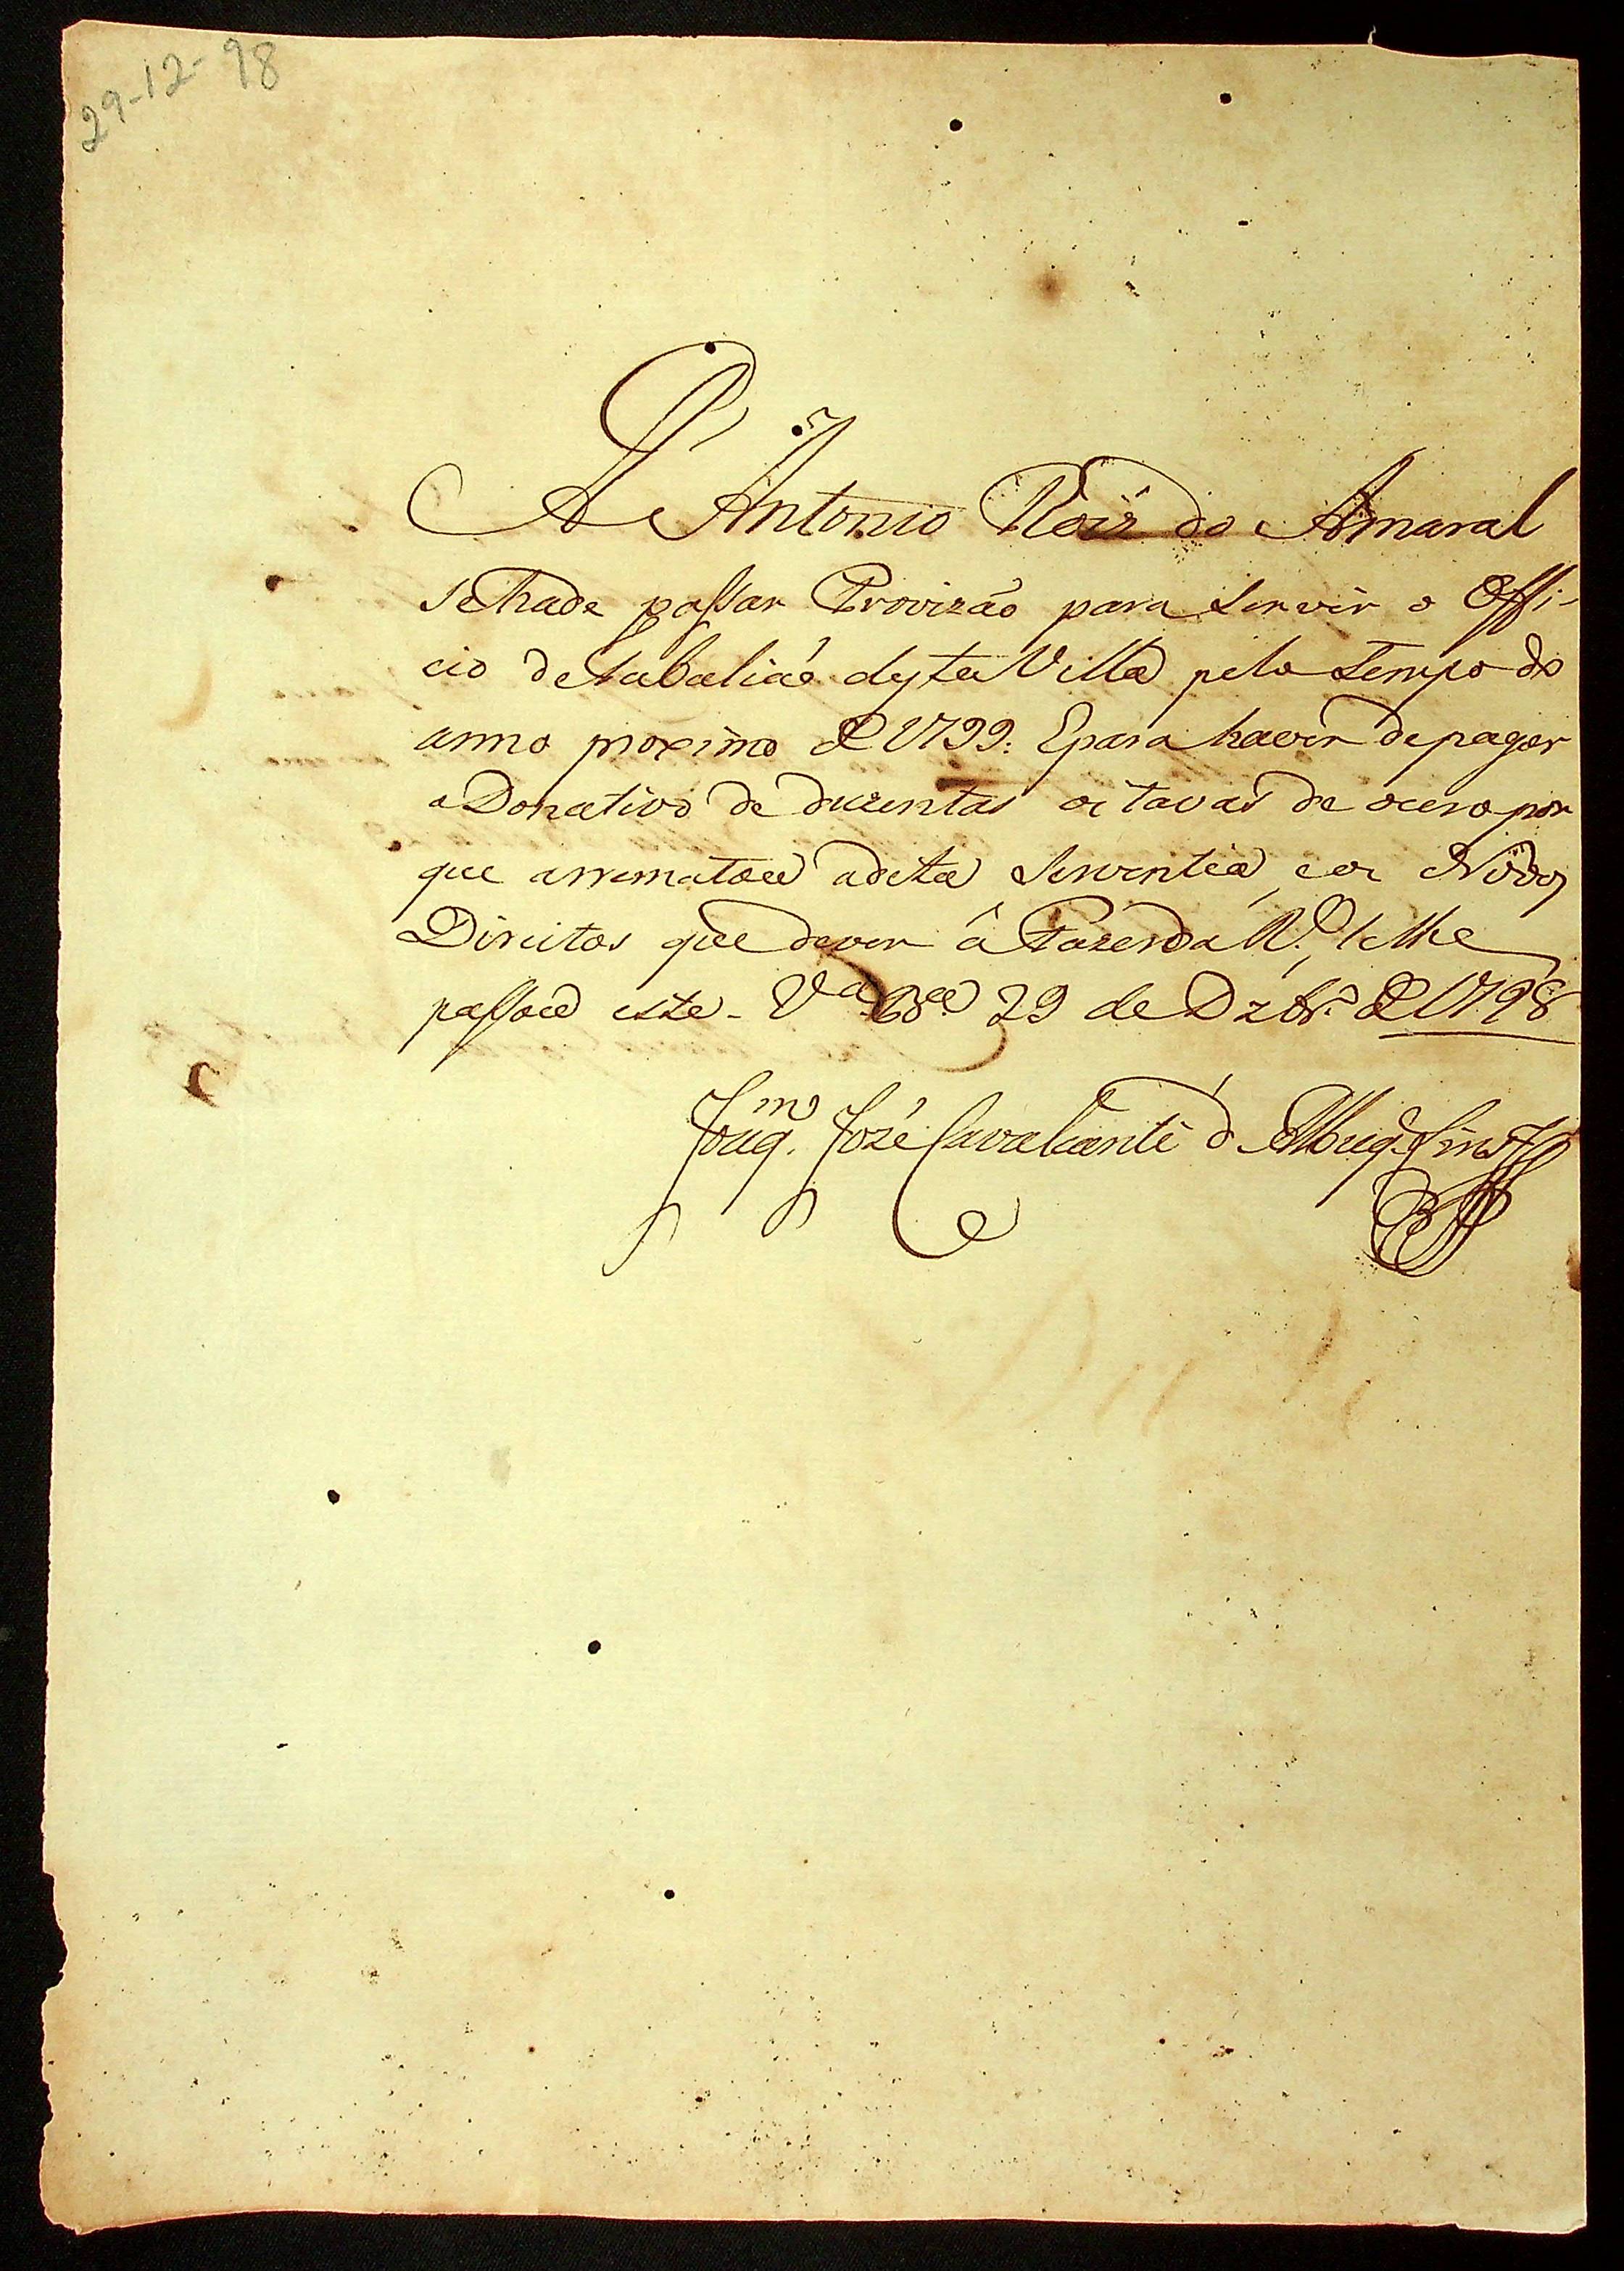 29-12-98
A Antonio Roiz do Amaral
se hade passar Provizaõ para servir o Offi-
cio de Tabaliaõ desta Villa pelo tempo do
anno proximo de 1799: E para haver de pagar
o Donativo de duzentas oitavas de ouro por
que arrematou a dita Serventia, e os Novos
Direitos que dever â Fazenda R.^l, se lhe
passou este - V^a B^a 29 de Dzbr.^o de 1798
Joaq.^m José Cavalcante d' Albuq.^e Lins